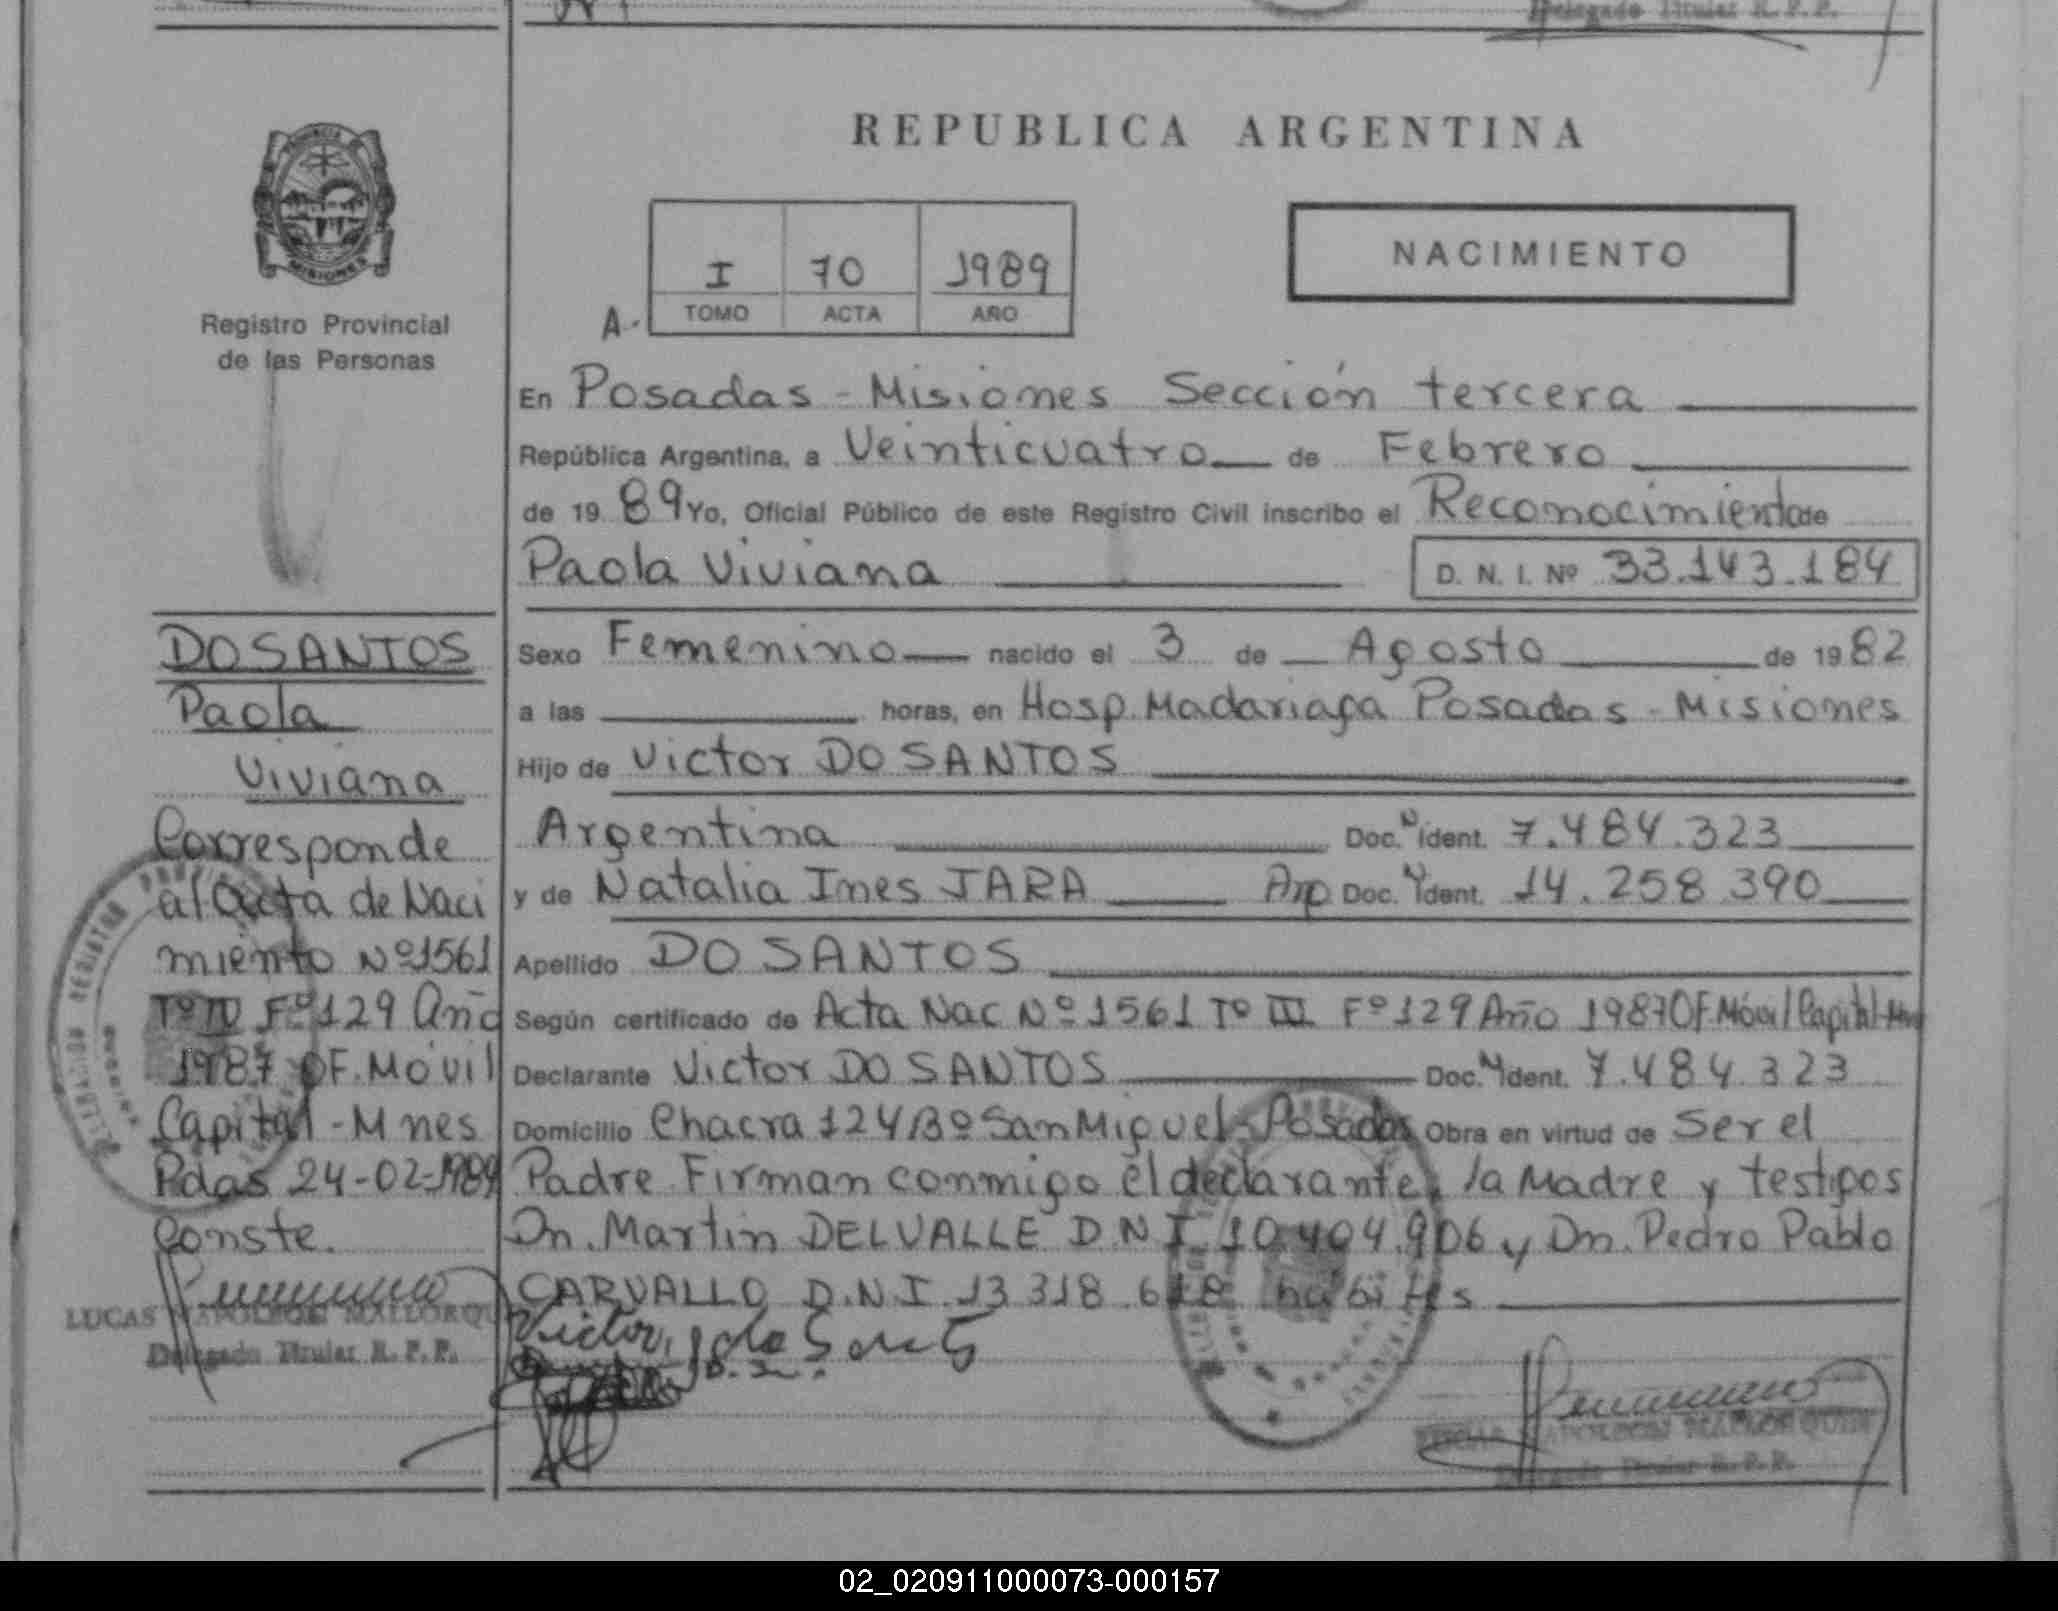 Delegado Titular R.P.P.
REPUBLICA ARGENTINA
MISIONES
Registro Provincial
de las Personas
NACIMIENTO
I 70 1989
A- TOMO ACTA AÑO
En Posadas - Misiones Sección tercera
República Argentina, a Veinticuatro de Febrero
de 19 89 Yo, Oficial Público de este Registro Civil inscribo el Reconocimiento de
Paola Viviana D. N. I. Nº 33.143.184
Sexo Femenino nacido el 3 de Agosto de 19 82
a las horas, en Hosp. Madariaga Posadas - Misiones
Hijo de Victor DO SANTOS
Argentina Doc. N ident. 7.484.323
y de Natalia Ines JARA Arg Doc. N ident. 14.258.390
Apellido DO SANTOS
Según certificado de Acta Nac Nº 1561 Tº III Fº 129 Año 1987 OF. Móvil Capital-Mnes
Declarante Victor DO SANTOS Doc. N ident. 7.484.323
Domicilio Chacra 124 Bº San Miguel - Posadas Obra en virtud de Ser el
Padre. Firman conmigo el declarante, la Madre y testigos
Dn. Martin DELVALLE D.N.I 10.404.906 y Dn. Pedro Pablo
CARVALLO D.N.I. 13.318.618 habiles
DO SANTOS
Paola
Viviana
Corresponde
al Acta de Naci
miento Nº 1561
Tº IV Fº 129 Año
1987 OF. Móvil
Capital - Mnes
Pdas 24-02-1989
Conste.
LUCAS NAPOLEON MALLORQU
Delegado Titular R.P.P.
Victor do Santos
LUCAS NAPOLEON MALLORQUIN
Delegado Titular R.P.P.
02_020911000073-000157